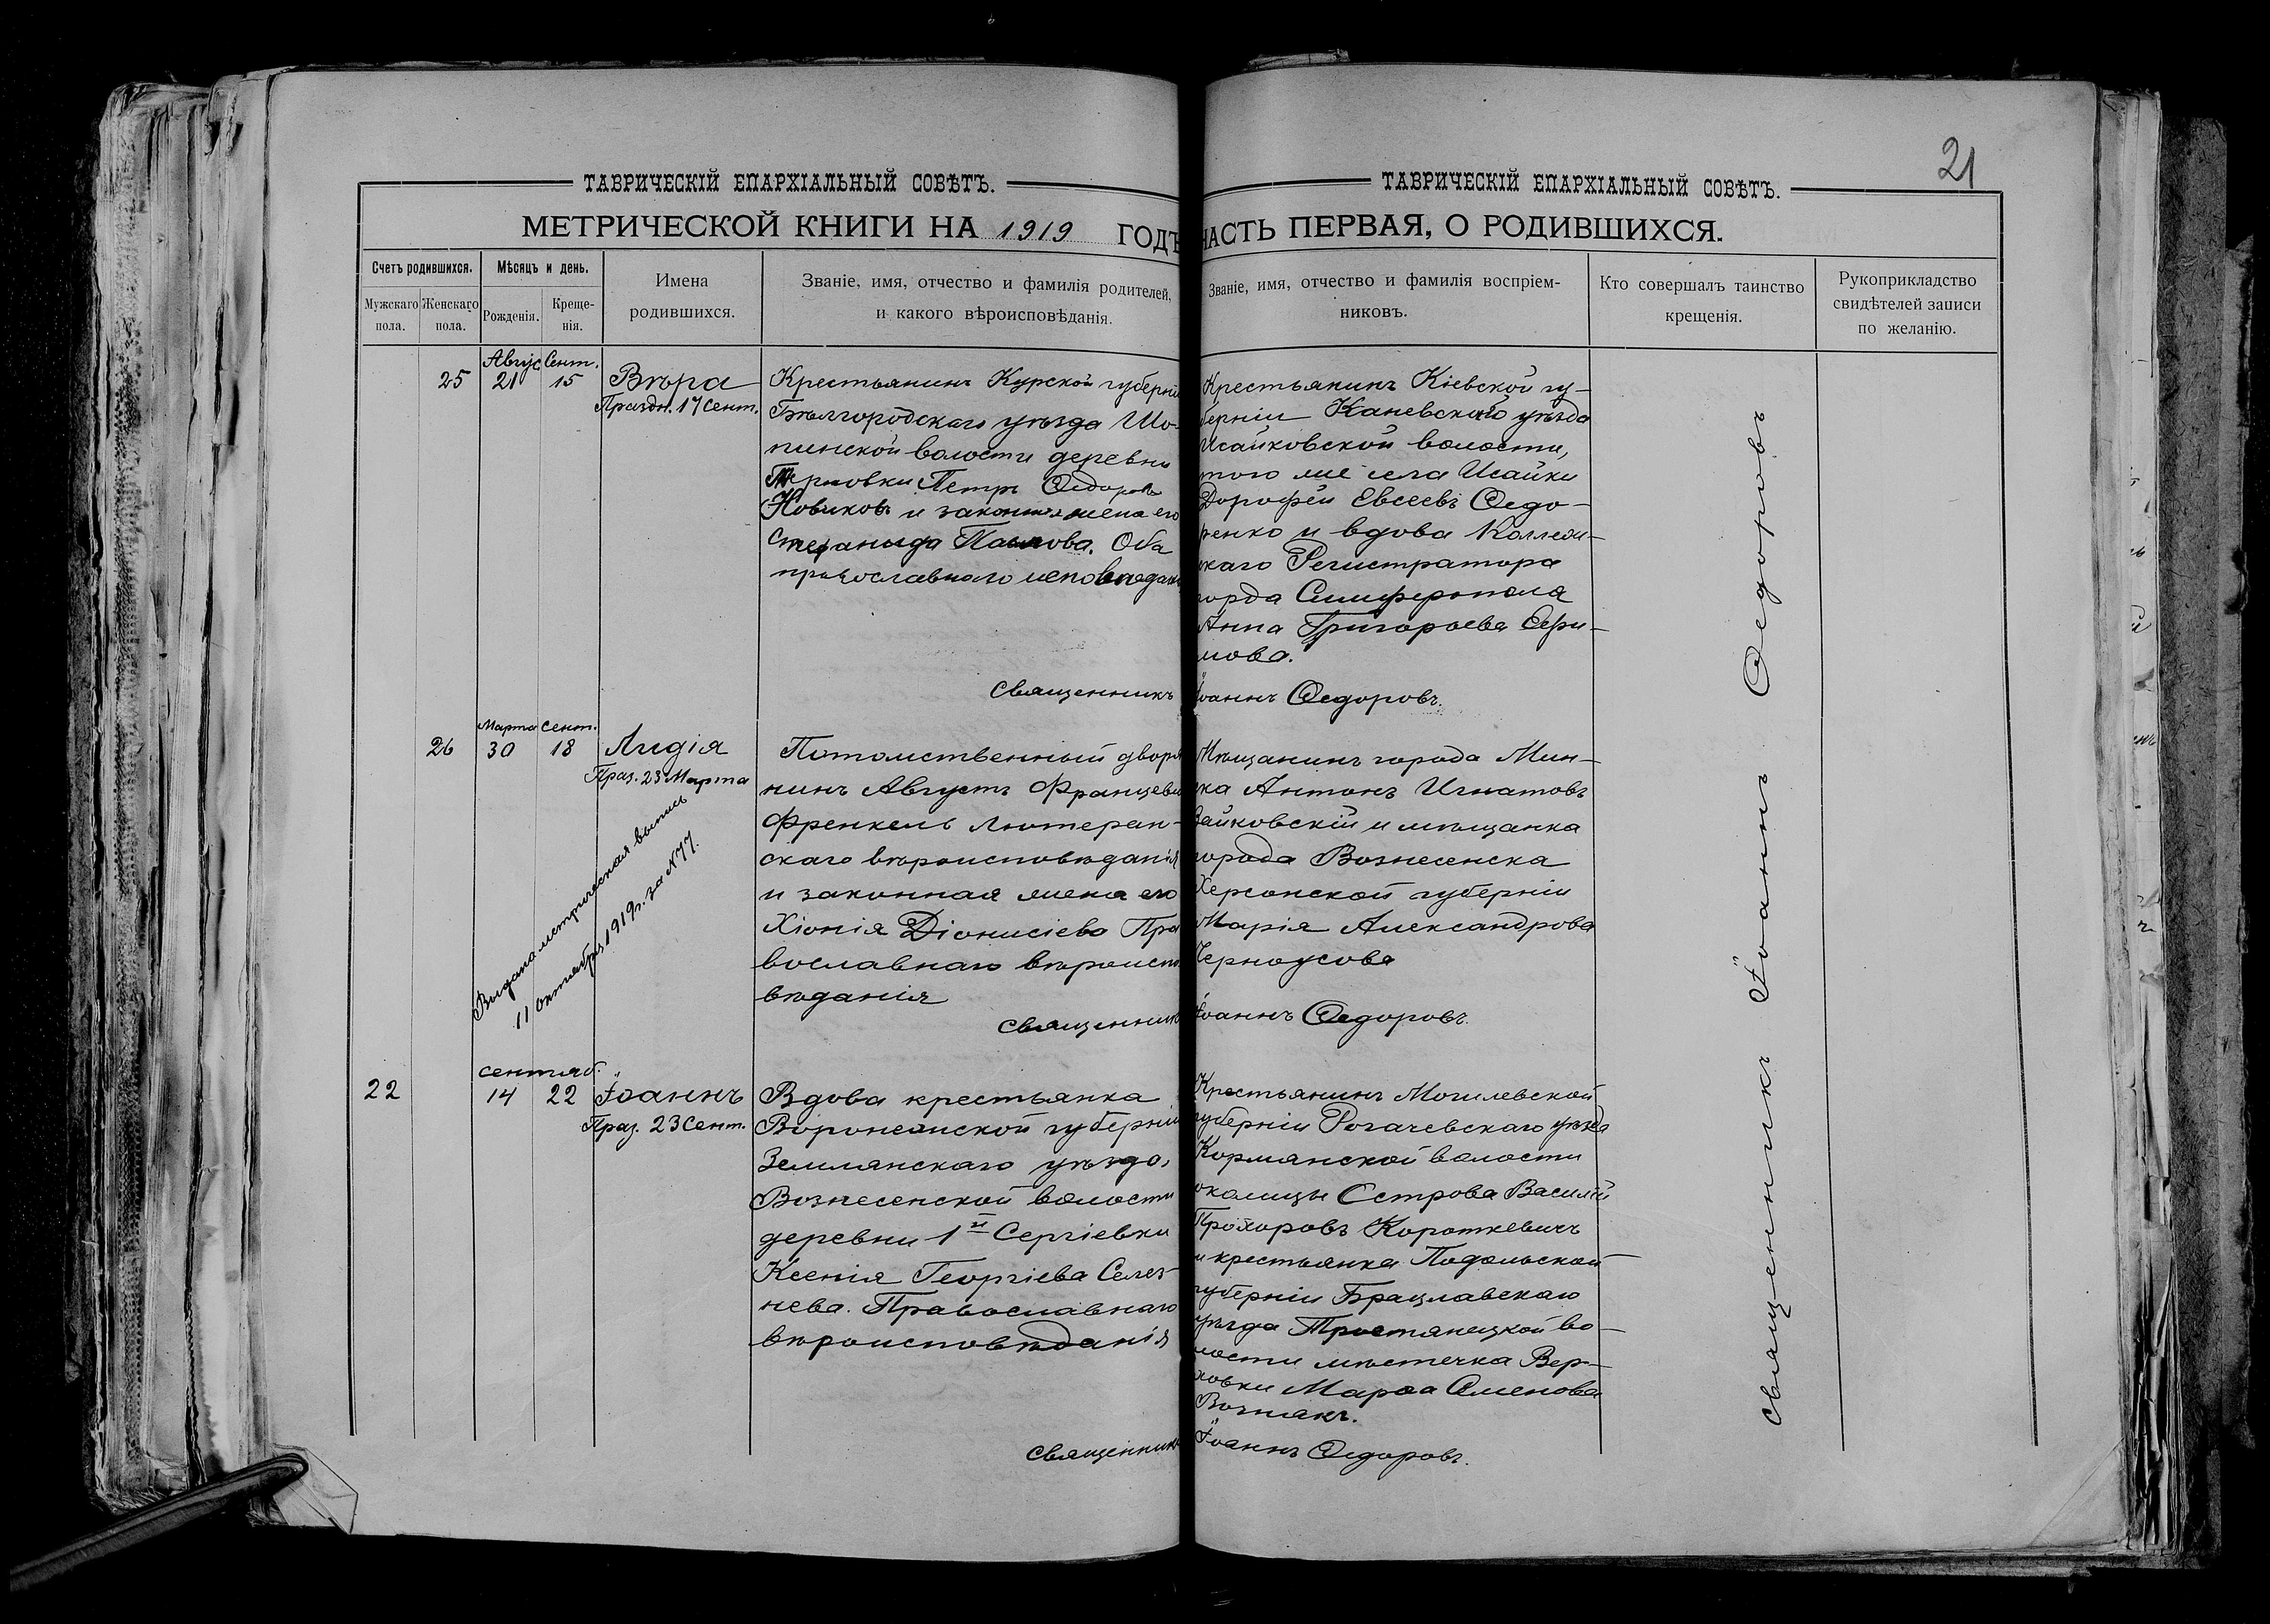 21
ТАВРИЧЕСКІЙ ЕПАРХІАЛЬНЫЙ СОВѢТЪ.
МЕТРИЧЕСКОЙ КНИГИ НА 1919 ГОДЪ
Счетъ родившихся.
Мужскаго пола.
Женскаго пола.
Мѣсяцъ и день.
Рожденія.
Креще-
нія.
Имена
родившихся.
Званіе, имя, отчество и фамилія родителей,
и какого вѣроисповѣданія.
Авгус Сент.
25 21 15 Вѣра
Праздн. 17 Сент.
Крестьянинъ Курской губерніи
Бѣлгородскаго уѣзда Шо-
пинской волости деревни
Терновки Петръ Ѳедоровъ
Новиковъ и законная жена его
Стефанида Павлова. Оба
православнаго исповѣдан
Священникъ
Марта Сент.
26 30 18 Лидія
Праз. 23 Марта
Выдана метрическая выпись
11 Октября 1919 г. за № 77.
Потомственный дворя
нинъ Августъ Францеви
Френкель Лютеран-
скаго вѣроисповѣданія
и законная жена его
Хіонія Діонисіева Пра
вославнаго вѣроиспо
вѣданія
Священник
сентяб.
22 14 22 Іоаннъ
Праз. 23 Сент.
Вдова крестьянка
Воронежской губерніи
Землянскаго уѣзда,
Вознесенской волости
деревни 1й Сергіевки
Ксенія Георгіева Селез-
нева. Православнаго
вѣроисповѣданія
Священник
ТАВРИЧЕСКІЙ ЕПАРХІАЛЬНЫЙ СОВѢТЪ.
ЧАСТЬ ПЕРВАЯ, О РОДИВШИХСЯ.
Званіе, имя, отчество и фамилія воспріем-
никовъ.
Кто совершалъ таинство
крещенія.
Рукоприкладство
свидѣтелей записи
по желанію.
Крестьянинъ Кіевской гу-
берніи Каневскаго уѣзда
Исайковской волости,
того же села Исайки
Дорофей Евсеевъ Ѳедо-
ренко и вдова Коллеж-
скаго Регистратора
города Симферополя
Анна Григорьева Ефи-
мова.
Іоаннъ Ѳедоровъ.
Мѣщанинъ города Мин-
ска Антонъ Игнатовъ
Зайковскій и мѣщанка
города Вознесенска
Херсонской губерніи
Марія Александрова
Черноусова
Іоаннъ Ѳедоровъ.
Крестьянинъ Могилевской
губерніи Рогачевскаго уѣзда
Кормянской волости
околицы Острова Василій
Прохоровъ Короткевичъ
и крестьянка Подольской
губерніи Брацлавскаго
уѣзда Тростянецкой во-
лости мѣстечка Вер-
ховки Марѳа Семенова
Вознякъ.
Іоаннъ Ѳедоровъ.
Священникъ Іоаннъ Ѳедоровъ